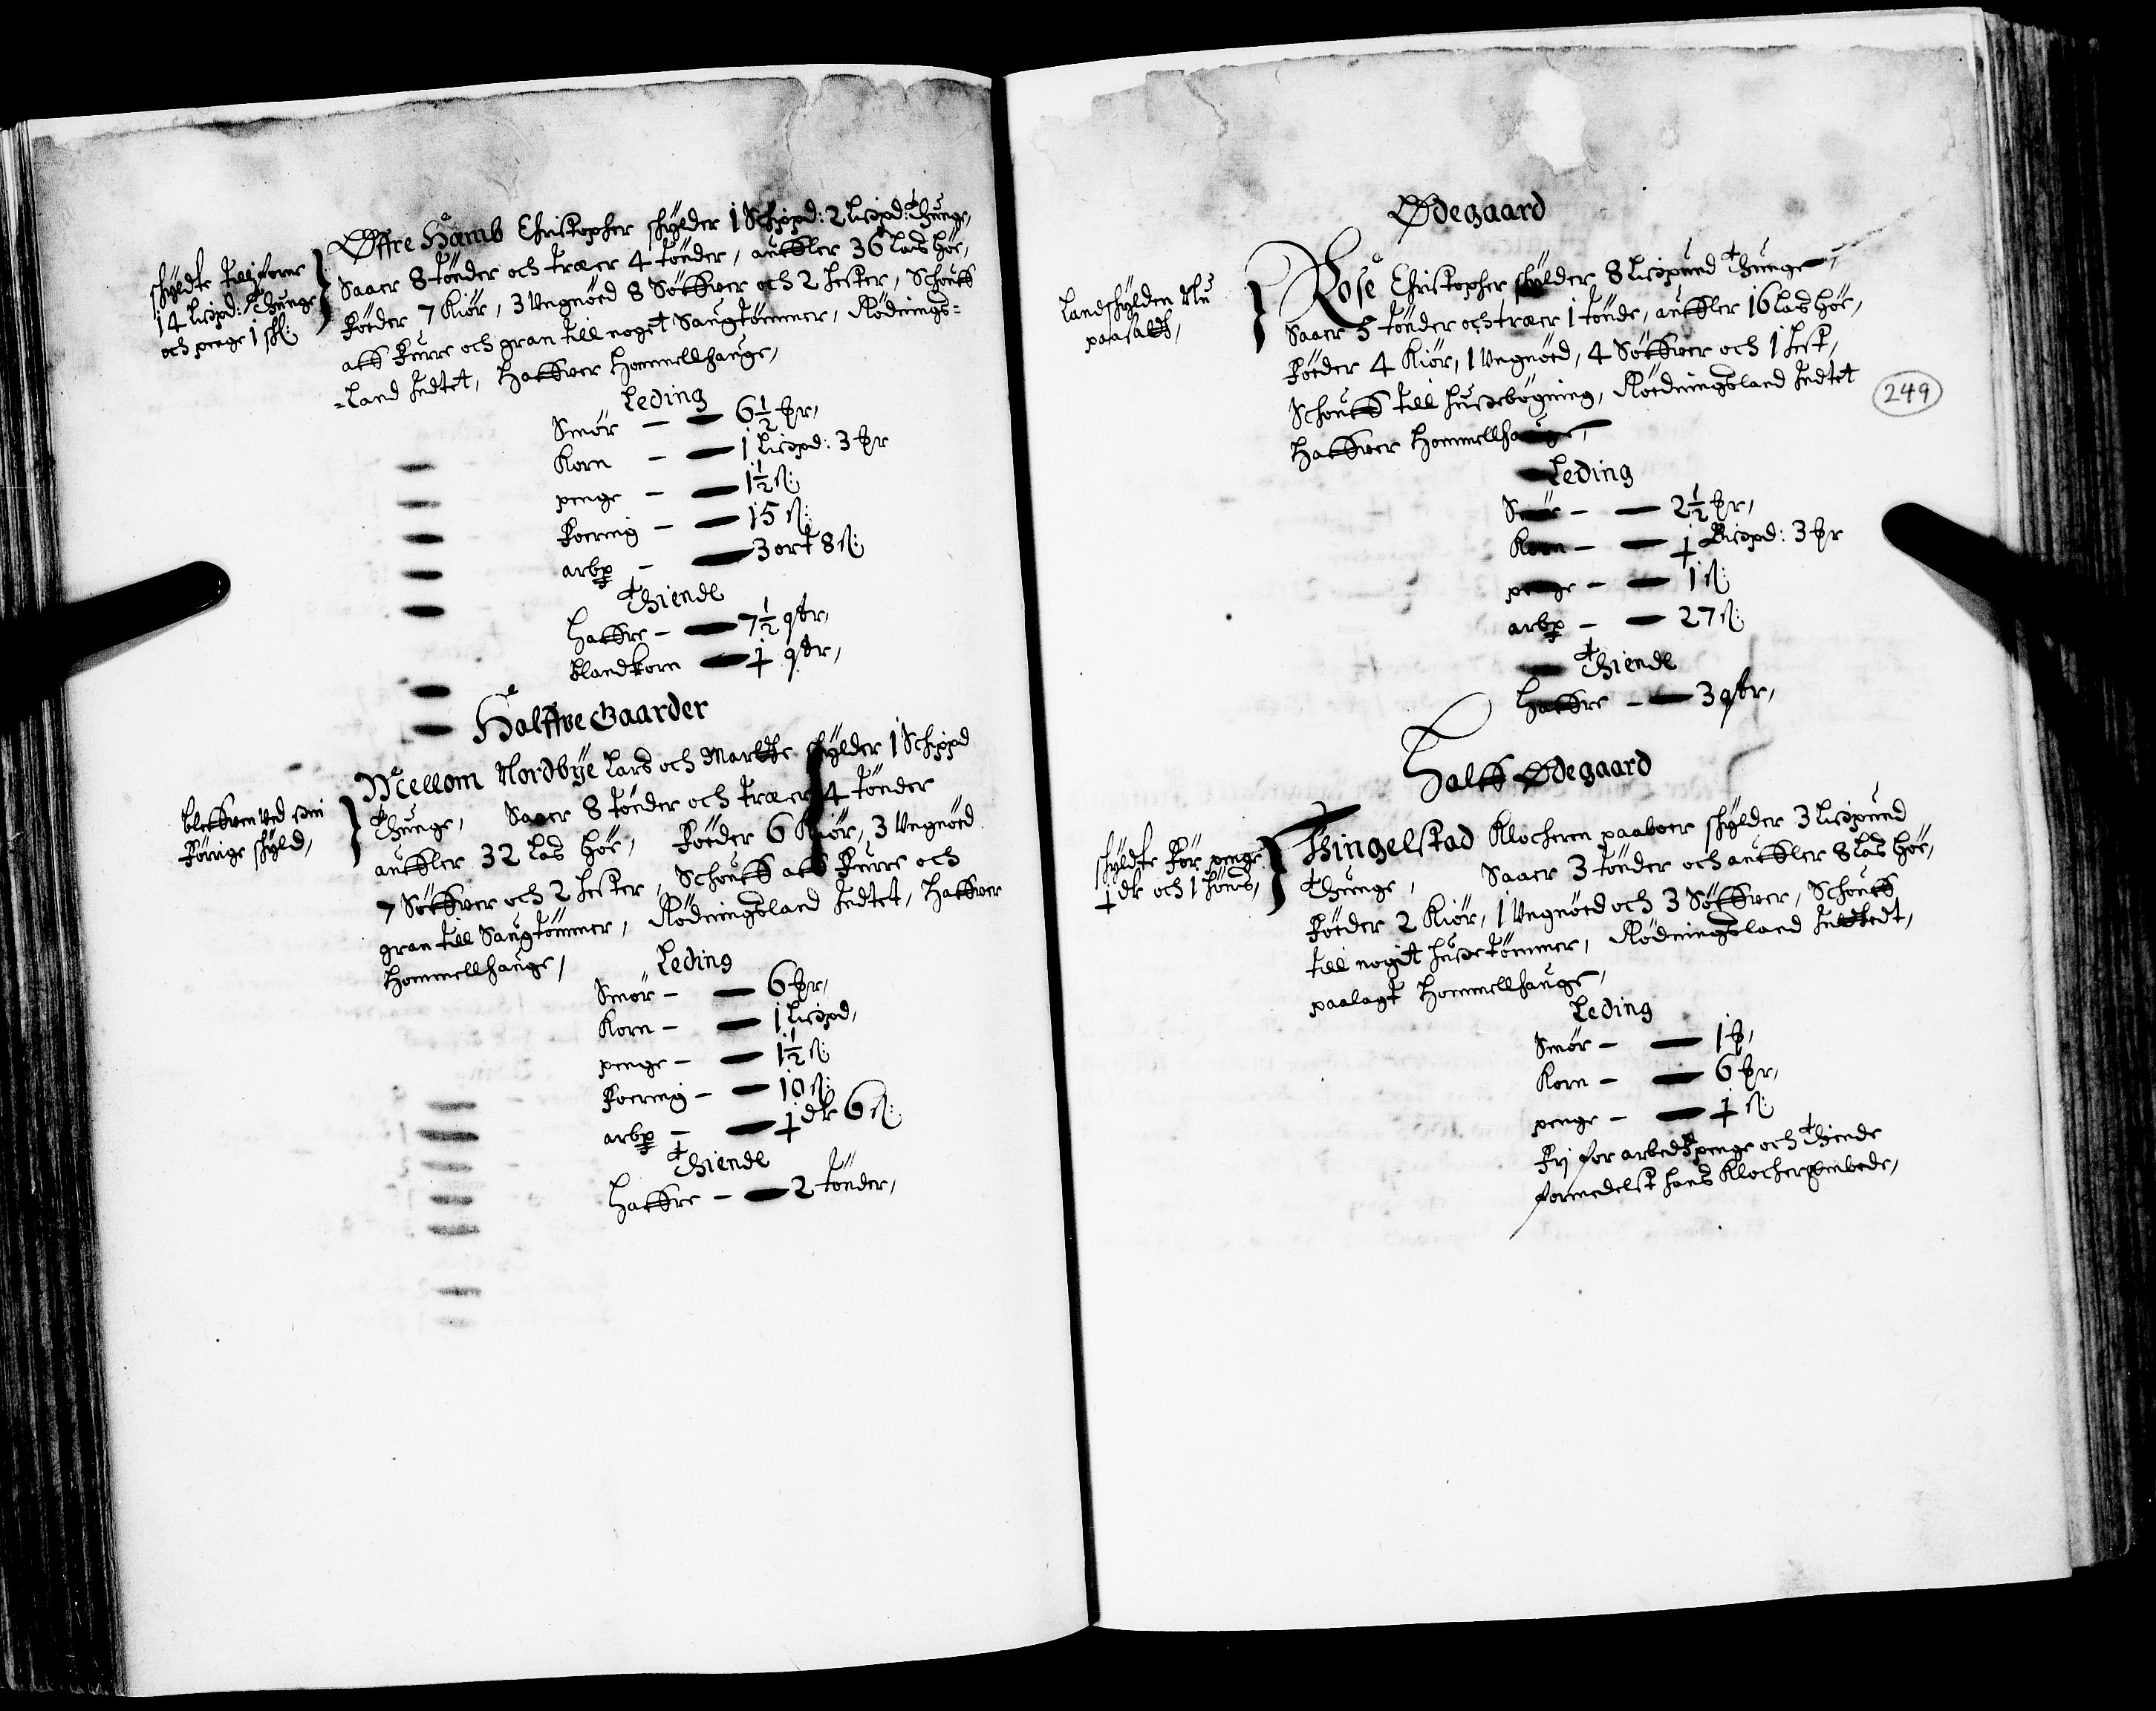 skyldte tillforne
14 Lispd: Thunge
och penge 1 skl:
Øffre Hamb Christopher skylder 1 Schippd: 2 Lispd: Thunge,
Saaer 8 tönder och træer 4 tönder, auffler 36 las höe,
föeder 7 Kiör, 3 Ungnöed 8 Söffuer och 2 hester, Schouff
aff furre och gran till noget Saugtömmer, Rödnings=
=land Indtet, haffuer Hommellhauge,
Leding
Smör — — 6½ þr,
Korn — — 1 Lispd: 3 þr
penge — — 1½ s:
foering — — 15 s:
arbp — — 3 ort 8 s:
Thiende
haffre — — 7½ qtr,
blandkorn — 1 qtr,
Halffue Gaarder
bleffuen ved sin
förrige skyld,
Mellom Nordbye Lars och Marthe skylder 1 Schippd
Thunge, Saaer 8 tönder och træer 4 tönder
auffler 32 las höe, föeder 6 Kiör, 3 Ungnöed
7 Söffuer och 2 hester, Schouff aff furre och
gran till Saugtömmer, Rödningsland Indtet, haffuer
Hommellhauge,
Leding
Smör — — 6 þr,
Korn — — 1 Lispd,
penge — — 1½ s:
foering — — 10 s:
arbp — — 1 dr 6 s:
Thiende
haffre — — 2 tönder,
Ødegaard
Landskylden Nu
paasatt,
Rose Christopher skylder 8 Lispund Thunge,
Saaer 5 tönder och træer 1 tönde, auffler 16 las höe,
föeder 4 Kiör, 1 Ungnöed, 4 Söffuer och 1 hest,
Schouff till husebögning, Rödningsland Indtet
haffuer Hommellhauge,
249
Leding
Smör — — 2½ þr,
Korn — — 1 Bispd: 3 þr
penge — — 1 s:
arbp — — 27 s:
Thiende
haffre — — 3 qtr,
Halff Ødegaard
skyldte för penge
1 dr och 1 hönds,
Thingelstad Klocheren paaboer skylder 3 Lispund
Thunge, Saaer 3 tönder och auffler 8 las höe,
föeder 2 Kiör, 1 Ungnöed och 3 Söffuer, Schouff
till nogit husetömmer, Rödningsland Indtedt,
paalagt Hommellhauge,
Leding
Smör — — 1 þ,
Korn — — 6 þr,
penge — — 1 s:
Fri for arbedtzpenge och Thiende
formedelst hans Klocherembede,